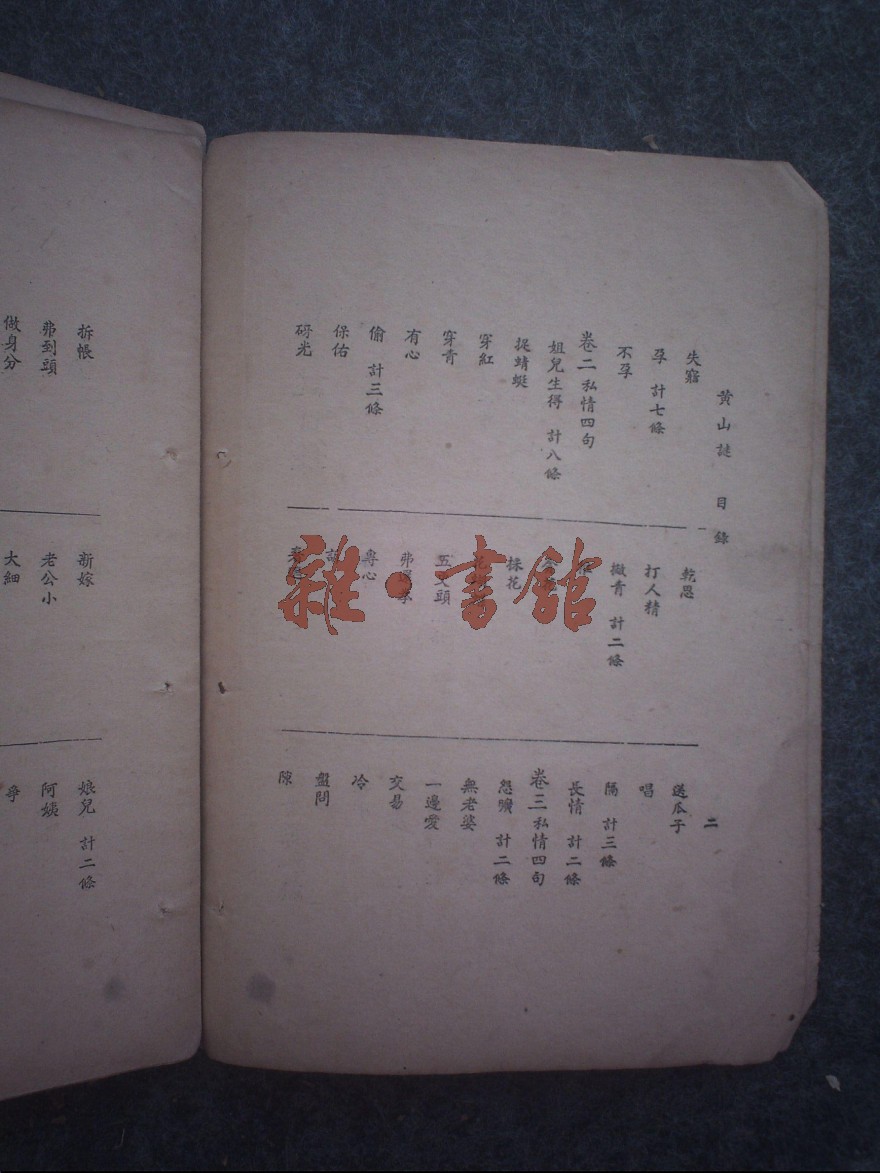 黄山謎 目錄
二
孕 計七條
不孕
卷二 私情四句
姐兒生得 計八條
捉蜻蜓
穿紅
穿青
有心
偷 計三條
保佑
砑光
乾思
打人精
撇青 計二條
採花
專心
送瓜子
唱
隔 計三條
長情 計二條
卷三 私情四句
怨曠 計二條
無老婆
一邊愛
交易
冷
盤問
陳
拆帳
弗到頭
做身分
新嫁
老公小
大細
娘兒 計二條
阿姨
爭
雜·書館